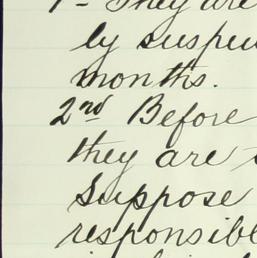 1- They are
ly suspen
months.
2nd Before
they are s
Suppose
responsible